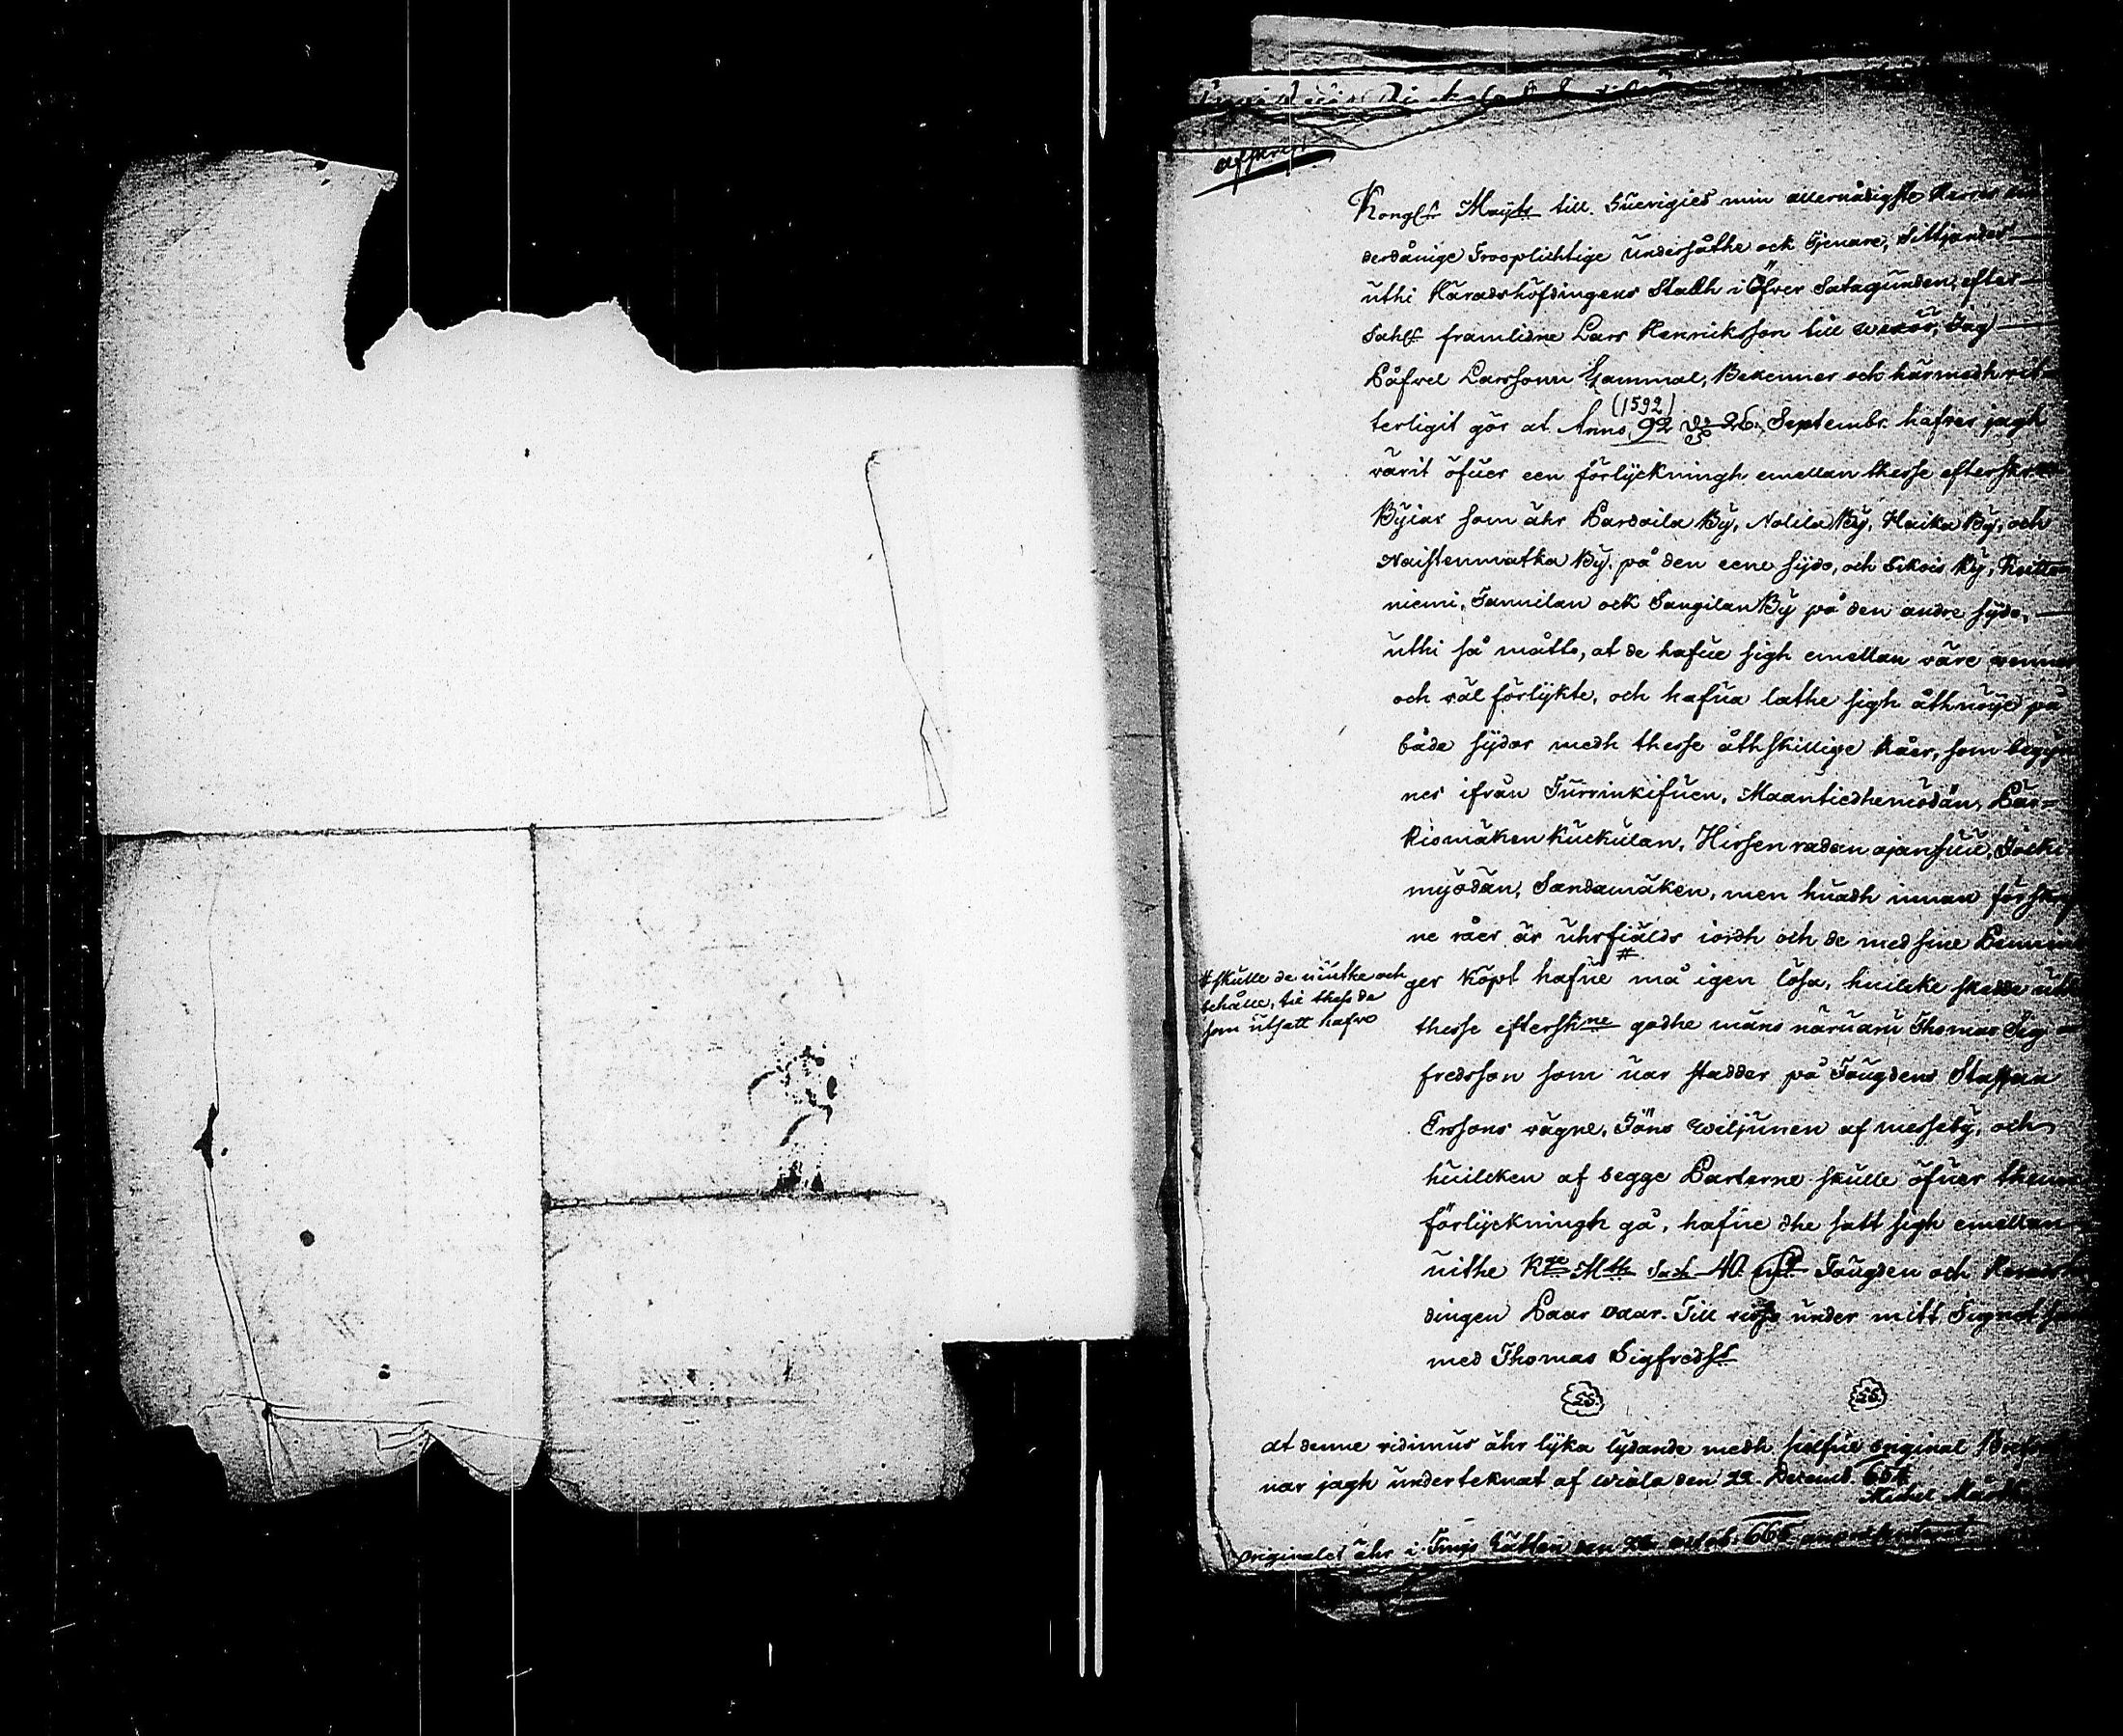 afskrift
Kongl. Mayts till Suerigies min allernådigste Herres
derdånige Trooplichtige Undersåthe ock Tjenare, Sittjandes
uthi Häradshöfdingens Stadh i Öfver Satagunden, efter
Sahl. framlidne Lars Henriksson till Jag
Påfvel Larssonn Gammal, Bekenner och härmedh vit-
(1592)
terligit gör at Anno 92 26. Septembr. hafver jagh
varit öfuer een förlyckningh emellan thesse efterskr
Byiar som ähr Pardaila By, Nolila By, Haika By, och
Naistenmatka By. på den eene sydo, och Sikois By,
niemi, Jannilan ock Saugilan By på den andre sydo,
uthi så måtto, at de hafue sigh emellan väre venner
och väl förlykte, och hafua lathe sigh åthnöye på
både sydor medh thesse åthskillige Råer, som begyn
nes ifrån Turrinkifuen, Maantiedheniödän, Pär=
kismäken Kuckulan, Hirsenradan ojansuu, Jocki
myödän, Sandamäken, men huadh innan förskr
ne råer är uhrfiälds iordh och de med sine Pennin
#
ger köpt hafue må igen lösa, huilcke skedde uthi
# skulle de niutke och
behålle, til thess de
som utsatt hafve
thesse efterskne godhe mäns näruaru Thomas Sig
fredsson som uar stadder på Fougdens Staffan
Erssons vägne, Jöns Wiljunen af messeby, och
huilcken af begge Parterne skulle öfuer thenne
förlyckningh gå, hafue dhe satt sigh emellan
uithe Kge Mtt Sack 40 Fougden och
dingen Paar vaar. Till visso under mitt Signet
med Thomas Sigfredss
LS. LS.
at denne vidimus ähr lyka lydande medh sielfue original
nar jagh underteknat af den 22. Decemb. 664
Michel
originalet ähr i Tings Rätten den 666